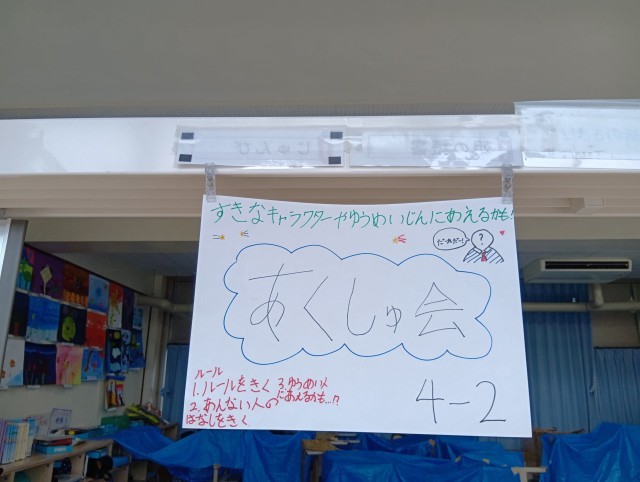 じゅんび
すきなキャラクターやゆうめいじんにあえるかも!
だーれだー!
?
あくしゅ会
ルール
1.ルールをきく
2.あんない人の
はなしをきく
3.ゆうめい人
にあえるかも…!?
4-2